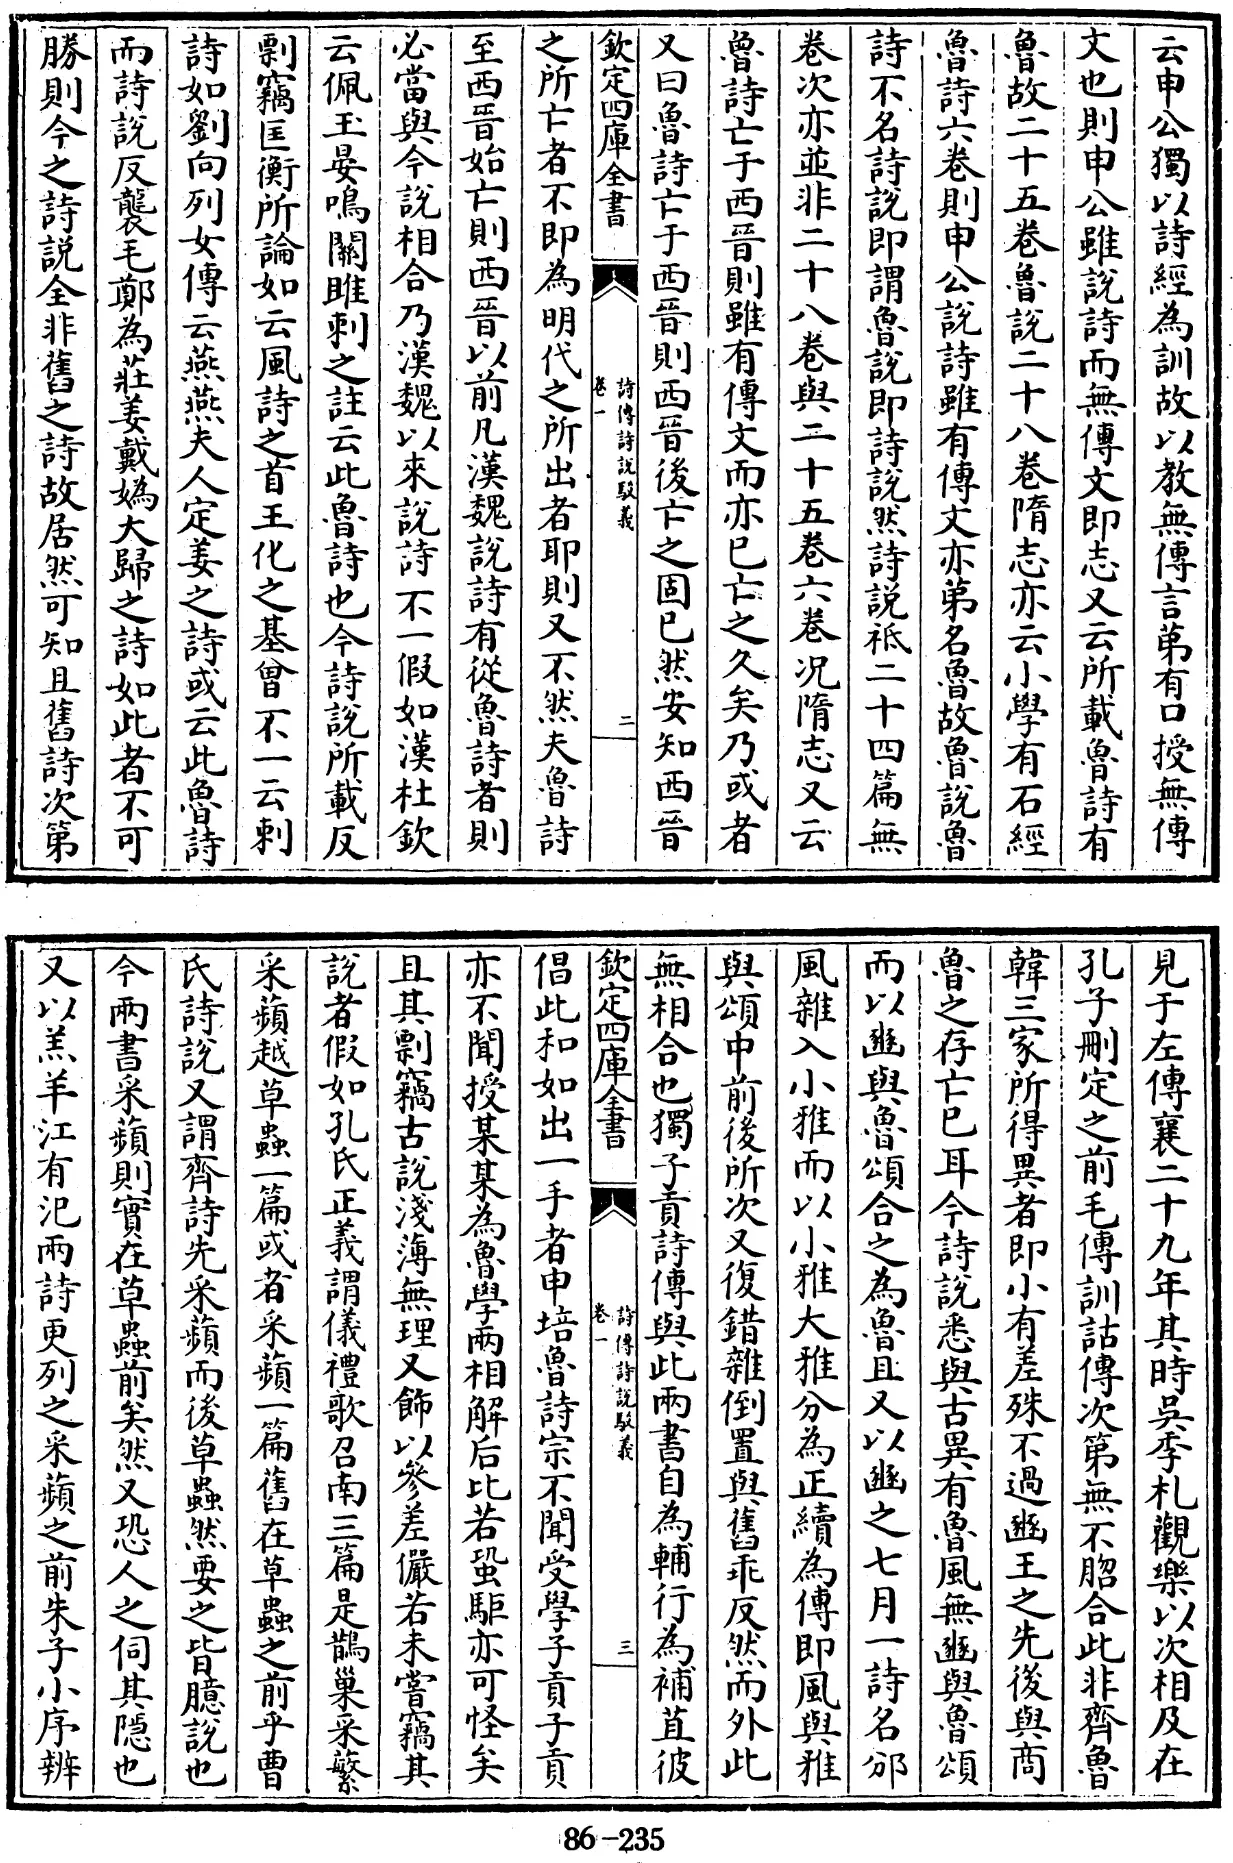 云申公獨以詩經為訓故以教無傳言苐有口授無傳
文也則申公雖說詩而無傳文即志又云所載魯詩有
魯故二十五卷魯說二十八卷隋志亦云小學有石經
魯詩六卷則申公說詩雖有傳文亦苐名魯故魯說魯
詩不名詩說即謂魯說即詩說然詩説祗二十四篇無
卷次亦並非二十八卷與二十五卷六卷况隋志又云
魯詩亡于西晉則雖有傳文而亦已亡之久矣乃或者
又曰魯詩亡于西晉則西晉後亡之固已然安知西晉
欽定四庫全書
詩傳詩説駁義
卷一
二
之所亡者不即為明代之所出者耶則又不然夫魯詩
至西晉始亡則西晉以前凡漢魏說詩有從魯詩者則
必當與今說相合乃漢魏以來說詩不一假如漢杜欽
云佩玉晏鳴關雎刺之註云此魯詩也今詩說所載反
剽竊匡衡所論如云風詩之首王化之基曾不一云刺
詩如劉向列女傳云燕燕夫人定姜之詩或云此魯詩
而詩説反襲毛鄭為莊姜戴嬀大歸之詩如此者不可
勝則今之詩説全非舊之詩故居然可知且舊詩次第
見于左傳襄二十九年其時吳季札觀樂以次相及在
孔子刪定之前毛傳訓詁傳次第無不脗合此非齊魯
韓三家所得異者即小有差殊不過豳王之先後與商
魯之存亡已耳今詩說悉與古異有魯風無豳與魯頌
而以豳與魯頌合之為魯且又以豳之七月一詩名邠
風雜入小雅而以小雅大雅分為正續為傳即風與雅
與頌中前後所次又復錯雜倒置與舊乖反然而外此
無相合也獨子貢詩傳與此兩書自為輔行為補苴彼
欽定四庫全書
詩傳詩説駁義
卷一
三
倡此和如出一手者申培魯詩宗不聞受學子貢子貢
亦不聞授某某為魯學兩相解后比若蛩駏亦可怪矣
且其剽竊古說淺薄無理又飾以參差儼若未嘗竊其
說者假如孔氏正義謂儀禮歌召南三篇是鵲巢采蘩
采蘋越草蟲一篇或者采蘋一篇舊在草蟲之前乎曹
氏詩說又謂齊詩先采蘋而後草蟲然要之皆臆說也
今兩書采蘋則實在草蟲前矣然又恐人之伺其隠也
又以羔羊江有汜兩詩更列之采蘋之前朱子小序辨
86-235